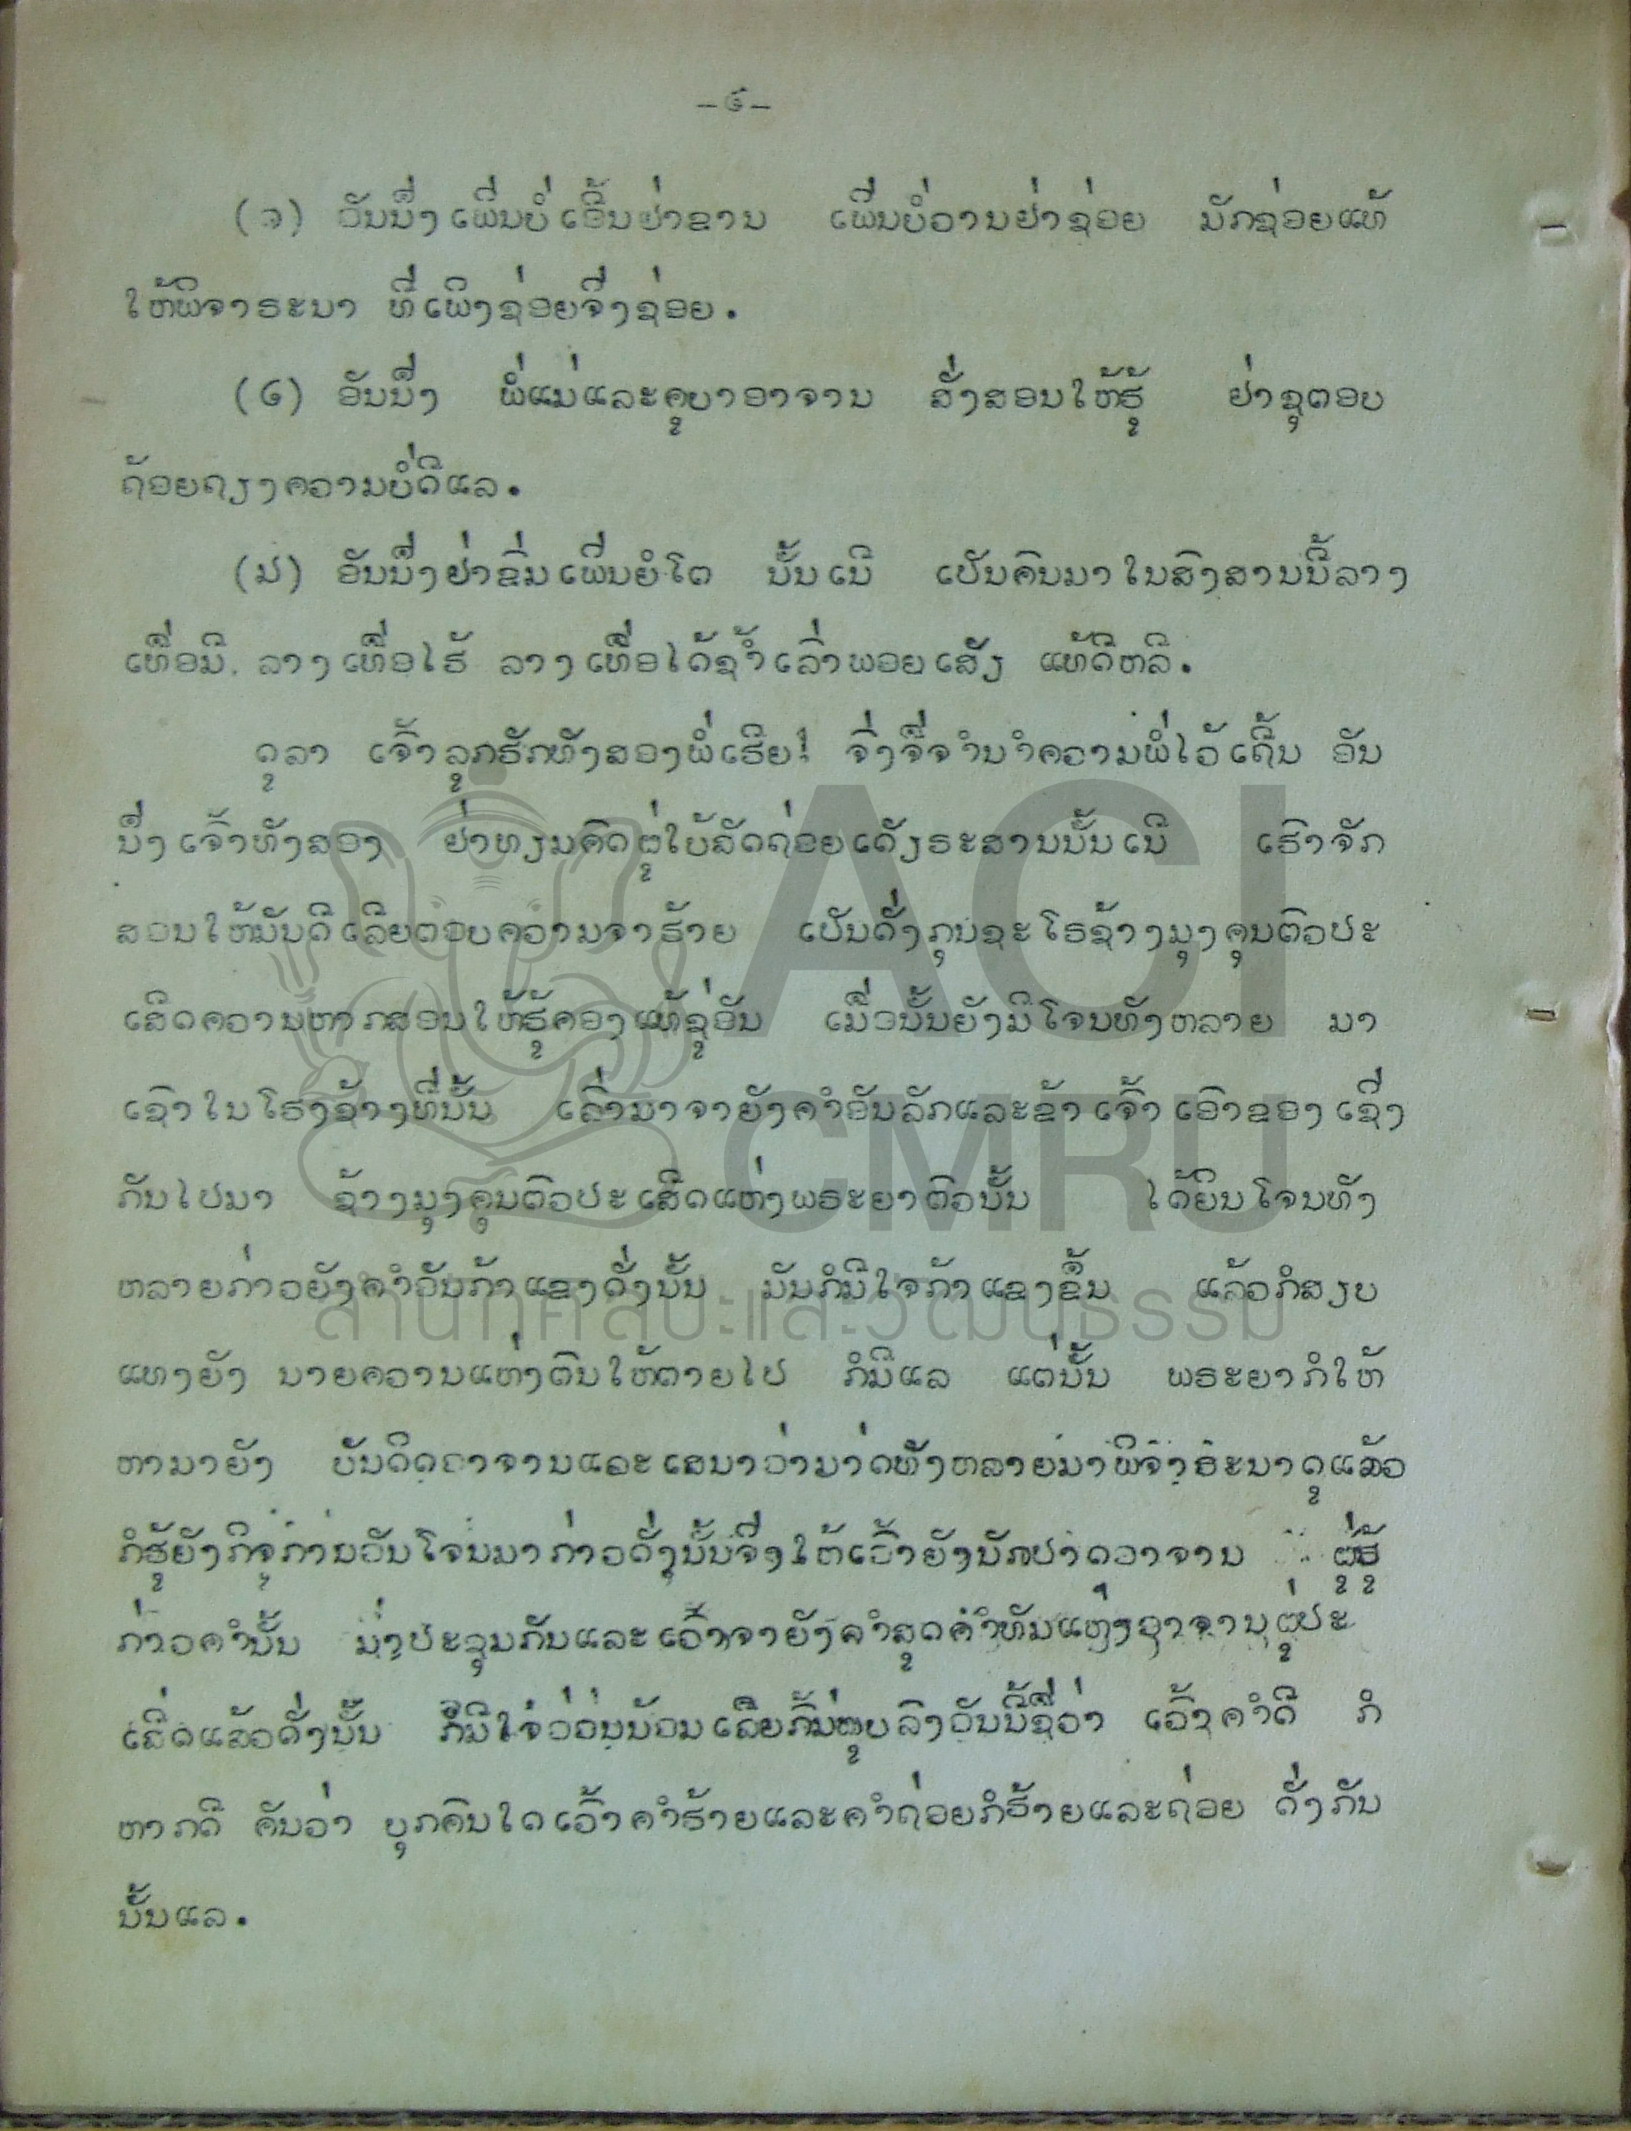 -໖-
(ຈ) ອັນນຶ່ງເພີ່ນບໍ່ເອີ້ນຢ່າຂານ ເພີ່ນບໍ່ວານຢ່າຊ່ອຍ ມັກຊ່ອຍແທ້
ໃຫ້ພິຈາຣະນາ ທີ່ເພິງຊ່ອຍຈຶ່ງຊ່ອຍ.
(ຕ) ອັນນຶ່ງ ພໍ່ແມ່ແລະຄູບາອາຈານ ສັ່ງສອນໃຫ້ຮູ້ ຢ່າຊຸຕອບ
ຖ້ອຍຖຽງຄວາມບໍ່ດີແລ.
(ມ) ອັນນຶ່ງຢ່າຂົ່ມເພີ່ນຍໍໂຕ ນັ້ນເນີ ເປັນຄົນມາໃນສົງສານນີ້ລາງ
ເທື່ອມີ ລາງເທື່ອໄຮ້ ລາງເທື່ອໄດ້ຊ້ຳເລົ່າພອຍເສັຽ ແທ້ດີຫລີ.
ດູລາ ເຈົ້າລູກຮັກທັງສອງພໍ່ເຮີຍ! ຈົ່ງຈື່ຈຳນຳຄວາມພໍ່ໄວ້ເຖີ້ນ ອັນ
ນຶ່ງເຈົ້າທັງສອງ ຢ່າທຽມຄົດຜູ່ໃບ້ສັດຖ່ອຍເດັຽຣະສານນັ້ນເນີ ເຮົາຈັກ
ສອນໃຫ້ມັນດີເລີຍຕອບຄວາມຈາຮ້າຍ ເປັນດັ່ງກຸນຊະໂຣຊ້າງມຸງຄຸນຕົວປະ
ເສີດຄວານຫາກສອນໃຫ້ຮູ້ຄອງແທ້ຊູ່ອັນ ເມື່ອນັ້ນຍັງມີໂຈນທັງຫລາຍ ມາ
ເຊົາໃນໂຮງຊ້າງທີ່ນັ້ນ ເລົ່າມາຈາຍັງຄຳອັນລັກແລະຂ້າເຈົ້າເອົາຂອງເຊິ່ງ
ກັນໄປມາ ຊ້າງມຸງຄຸນຕົວປະເສີດແຫ່ງພຣະຍາຕົວນັ້ນ ໄດ້ຍິນໂຈນທັງ
ຫລາຍກ່າວຍັງຄຳອັນກ້າແຂງດັ່ງນັ້ນ ມັນກໍມີໃຈກ້າແຂງຂຶ້ນ ແລ້ວກໍສຽບ
ແທງຍັງ ນາຍຄວານແຫ່ງຕົນໃຫ້ຕາຍໄປ ກໍມີແລ ແຕ່ນັ້ນ ພຣະຍາກໍໃຫ້
ຫາມາຍັງ ບັນດິດອາຈານແລະເສນາວ່າມາດທັງຫລາຍມາພິຈາຣະນາດູແລ້ວ
ກໍຮູ້ຍັງກິຈການອັນໂຈນມາກ່າວດັ່ງນັ້ນຈຶ່ງໃຫ້ເວົ້າຍັງນັກປາດອາຈານ ຜູ່ຮູ້
ກ່າວຄຳນັ້ນ ມາປະຊຸມກັນແລະເວົ້າຈາຍັງຄຳສູດຄຳທັມແຫ່ງອາຈານຜູ່ປະ
ເສີດແລ້ວດັ່ງນັ້ນ ກໍມີໃຈອ່ອນນ້ອມເລີຍກົ້ມໝູບລົງອັນນີ້ຊື່ວ່າ ເວົ້າຄຳດີ ກໍ
ຫາກດີ ຄັນວ່າ ບຸກຄົນໃດເວົ້າຄຳຮ້າຍແລະຄຳຖ່ອຍກໍຮ້າຍແລະຖ່ອຍ ດັ່ງກັນ
ນັ້ນແລ.
ACI
CMRU
สำนักศิลปะและวัฒนธรรม